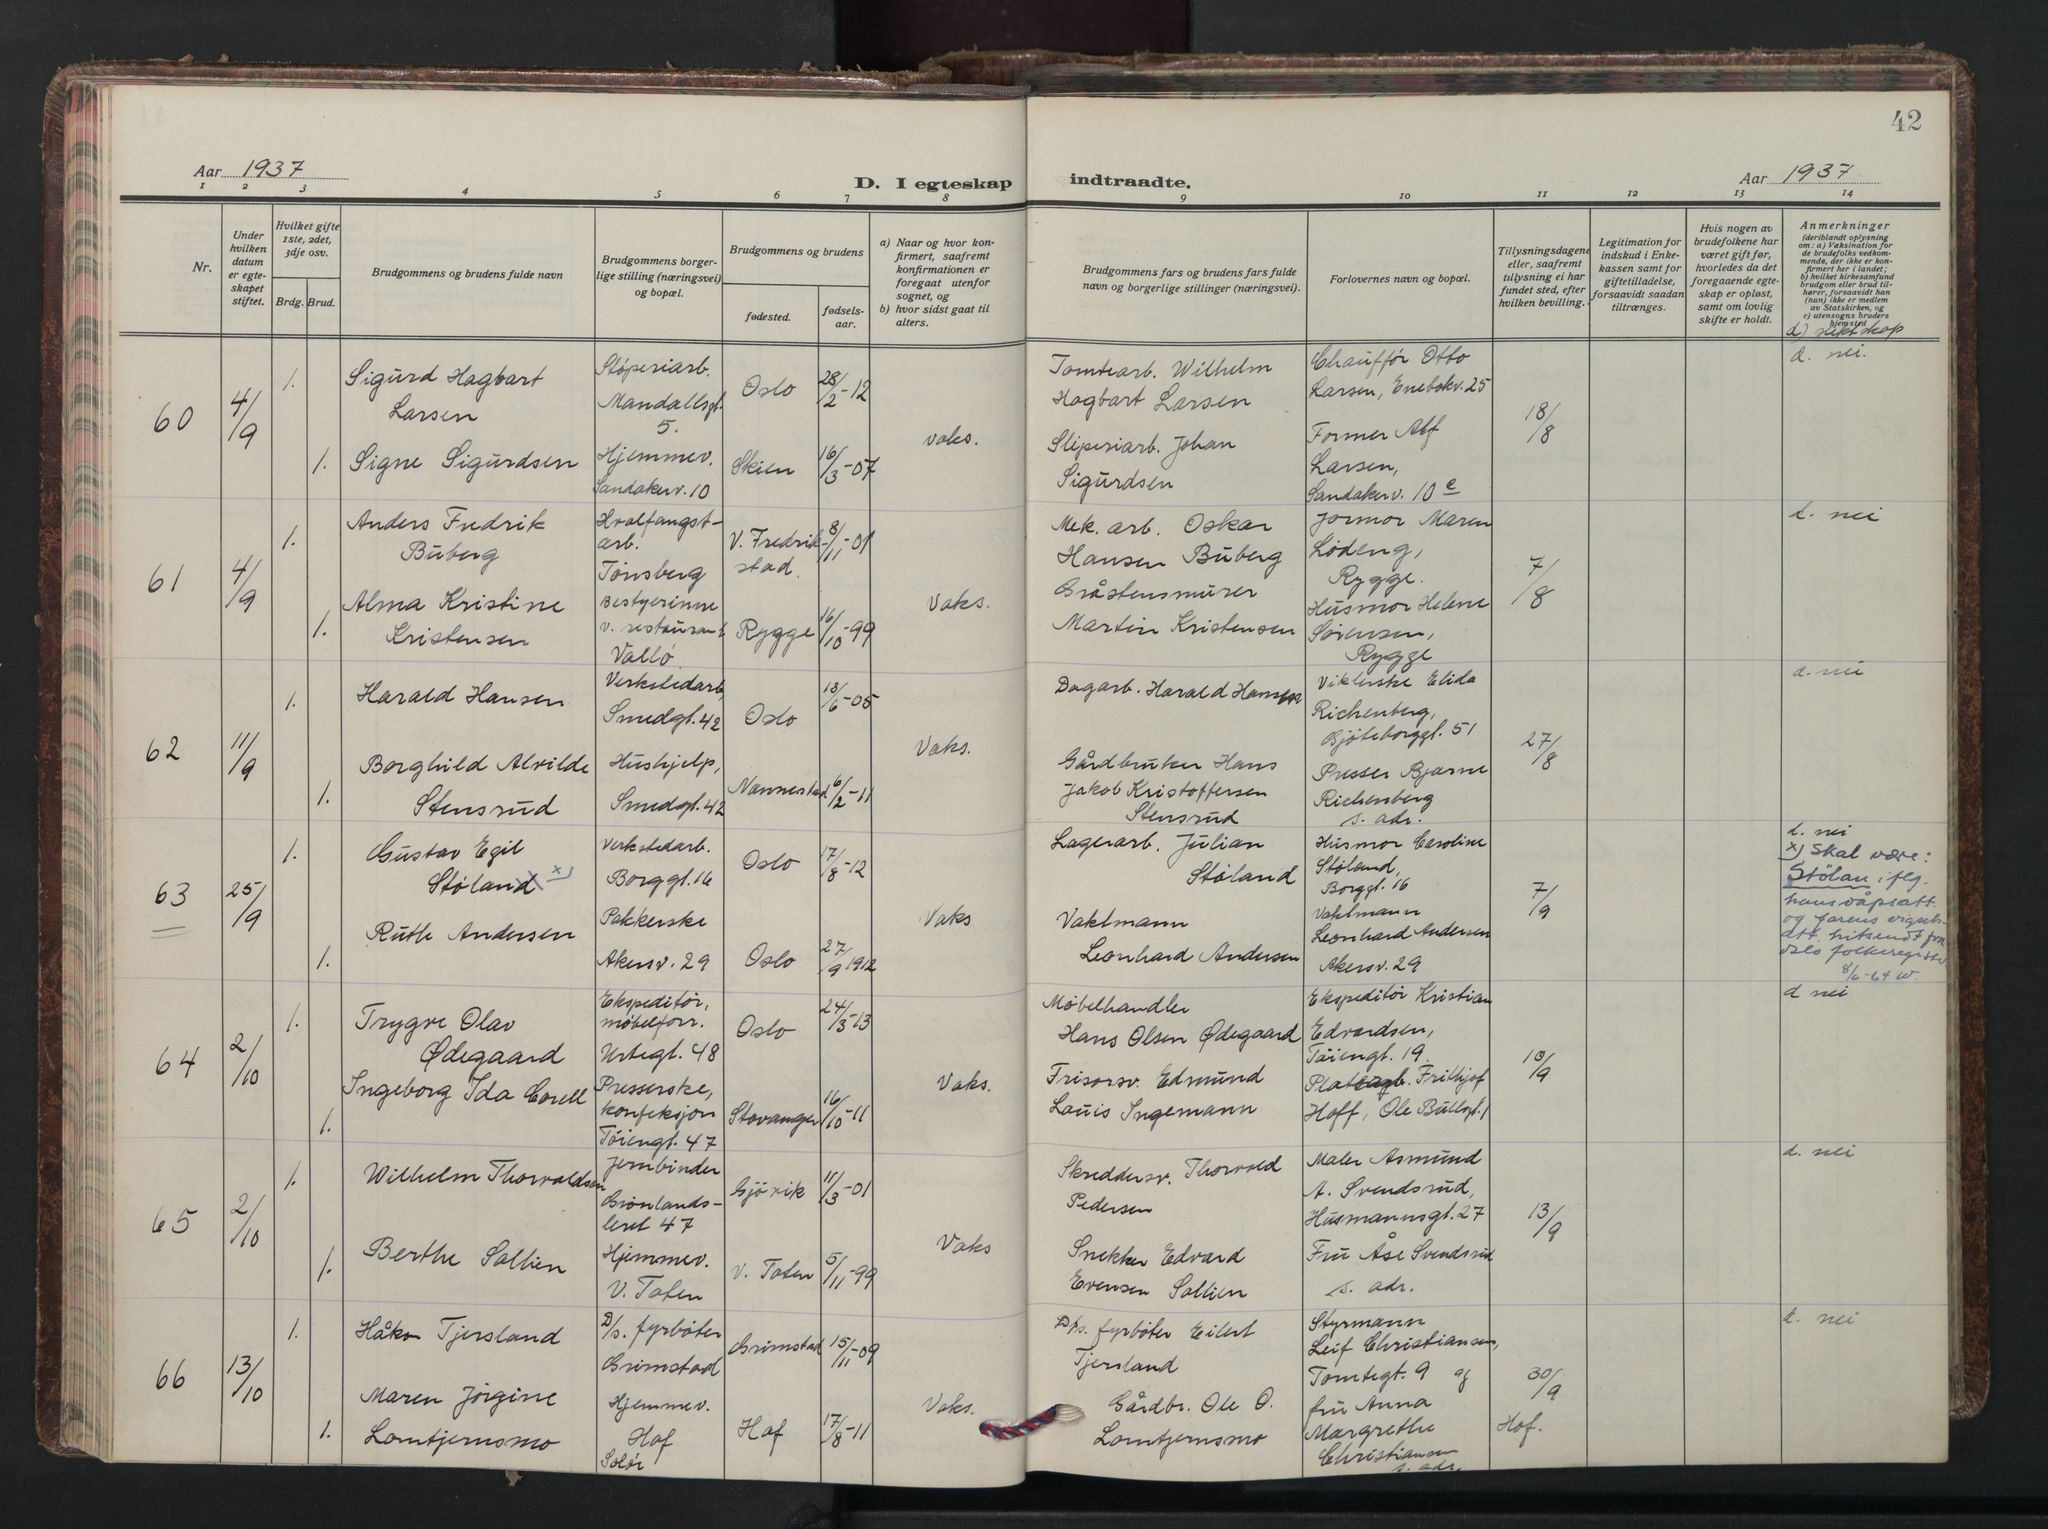 42
Aar 1937
D. I egteskap indtraadte.
Aar 1937
1 2 3 4 5 6 7 8 9 10 11 12 13 14
Nr.
Under hvilken datum er egteskapet stiftet.
Hvilket gifte 1ste, 2det, 3dje osv.
Brdg. Brud.
Brudgommens og brudens fulde navn
Brudgommens borgerlige stilling (næringsvei) og bopæl.
Brudgommens og brudens
fødested.
fødselsaar.
a) Naar og hvor konfirmert, saafremt konfirmationen er foregaat utenfor sognet, og
b) hvor sidst gaat til alters.
Brudgommens fars og brudens fars fulde navn og borgerlige stillinger (næringsvei).
Forlovernes navn og bopæl.
Tillysningsdagene eller, saafremt tillysning ei har fundet sted, efter hvilken bevilling.
Legitimation for indskud i Enkekassen samt for giftetilladelse, forsaavidt saadan tiltrænges.
Hvis nogen av brudefolkene har været gift før, hvorledes da det foregaaende egteskap er opløst, samt om lovlig skifte er holdt.
Anmerkninger
(deriblandt oplysning om: a) Vaksination for de brudefolks vedkommende, der ikke er konfirmert her i landet; b) hvilket kirkesamfund brudgom eller brud tilhører, forsaavidt han (hun) ikke er medlem av Statskirken, og c) utensogns bruders hjemsted
d) slektskap
60
4/9
1.
Sigurd Hagbart
Larsen
Støperiarb.
Mandallsgt.
5.
Oslo
28/2-12
Tomtearb. Wilhelm
Hagbart Larsen
Chauffør Otto
Larsen, Enebakv. 25
18/8
d. nei.
1.
Signe Sigurdsen
Hjemmev.
Sandakerv. 10
Skien
16/3-07
vaks.
Sliperiarb. Johan
Sigurdsen
Former Alf
Larsen,
Sandakerv. 10 e
61
4/9
1.
Anders Fredrik
Buberg
Hvalfangst-
arb.
Tønsberg
V. Fredrik-
stad.
8/11-01
Mek. arb. Oskar
Hansen Buberg
Jormor Maren
Lødeng,
Rygge.
7/8
d. nei
1.
Alma Kristine
Kristensen
Bestyerinne
v. restaurant
Vallø.
Rygge
16/10-99
Vaks.
Gråstensmurer
Martin Kristensen
Husmor Helene
Sørensen,
Rygge
62
11/9
1.
Harald Hansen
Verkstedarb,
Smedgt. 42
Oslo
13/6-05
Dagarb. Harald Hansen
Viklerske Elida
Richenberg,
Gjøteborggt. 51
27/8
d. nei
1.
Borghild Alvilde
Stensrud
Hushjelp,
Smedgt. 42
Nannestad
6/2-11
Vaks.
Gårdbruker Hans
Jakob Kristoffersen
Stensrud
Presser Bjarne
Richenberg
s. adr.
63
25/9
1.
Gustav Egil
Støland x)
Verkstedarb.
Borggt. 16
Oslo
17/8-12
Lagerarb. Julian
Støland
Husmor Caroline
Støland,
Borggt. 16
7/9
d. nei
x) Skal være:
Stølan, i flg.
hans dåpsatt.
og farens vigsels-
att. hitsendt fra
Oslo folkeregister
8/6-64 W.
1.
Ruth Andersen
Pakkerske
Akersv. 29
Oslo
27/9 1912
Vaks
Vaktmann
Leonhard Andersen
Vaktmann
Leonhard Andersen
Akersv. 29
64
2/10
1.
Trygve Olav
Ødegaard
Ekspeditør,
møbelforr.
Urtegt. 48
Oslo
24/3-13
Møbelhandler
Hans Olsen Ødegaard
Ekspeditør Kristian
Edvardsen,
Tøiengt. 19.
13/9
d nei
1.
Ingeborg Ida Corell
Presserske,
konfeksjon
Tøiengt. 47
Stavanger
16/10-11
Vaks.
Frisørsv. Edmund
Louis Ingemann
Frithjof
Hoff, Ole Bullsgt. 1
65
2/10
1.
Wilhelm Thorvaldsen
Jernbinder
Grønlands-
leret 47
Gjøvik
11/3-01
Skreddersv. Thorvald
Pedersen
Maler Asmund
A. Svendsrud,
Husmannsgt. 27
13/9
d. nei
1.
Berthe Sollien
Hjemmev.
V. Toten
V. Toten
5/11-99
Vaks
Snekker Edvard
Evensen Sollien
Fru Åse Svendsrud
s. adr.
66
13/10
1.
Håkon Tjersland
D/s. fyrbøter
Grimstad
Grimstad
15/11-09
D/s. fyrbøter Eilert
Tjersland
Styrmann
Leif Christiansen,
Tomtegt. 9 og
30/9
Hof.
d. nei
1.
Maren Jørgine
Lomtjernsmo
Hjemmev.
Hof
Solør
Hof
17/8-11
Vaks.
Gårdbr. Ole O.
Lomtjernsmo
fru Anna
Margrethe
Christiansen
s. adr.